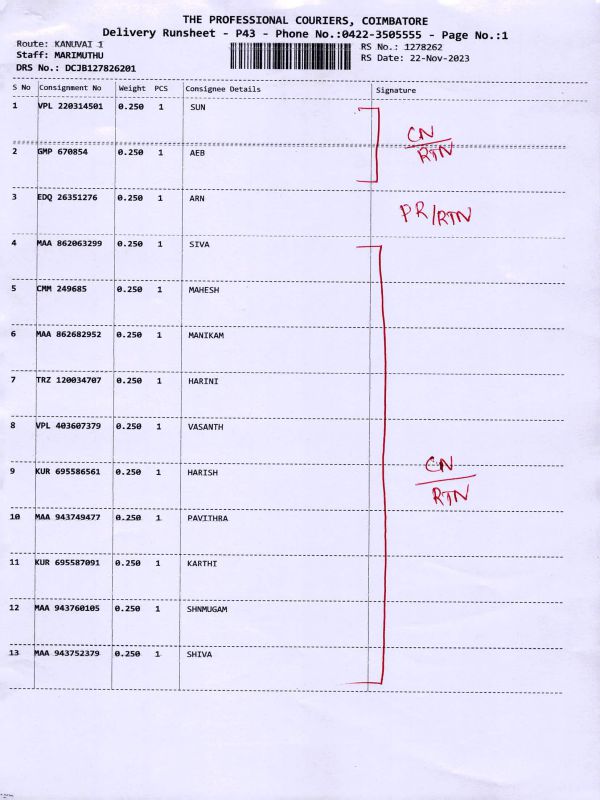 THE PROFESSIONAL COURIERS, COIMBATORE
Delivery Runsheet - P43 - Phone No.:0422-3505555 - Page No.:1
Route: KANUVAI 1 RS No.: 1278262
Staff: MARIMUTHU RS Date: 22-Nov-2023
DRS No.: DCJB127826201
S No Consignment No Weight PCS Consignee Details Signature
1 VPL 220314501 0.250 1 SUN
CN
RTN
2 GMP 670854 0.250 1 AEB
3 EDQ 26351276 0.250 1 ARN PR/RTN
4 MAA 862063299 0.250 1 SIVA
5 CMM 249685 0.250 1 MAHESH
6 MAA 862682952 0.250 1 MANIKAM
7 TRZ 120034707 0.250 1 HARINI
8 VPL 403607379 0.250 1 VASANTH
9 KUR 695586561 0.250 1 HARISH CN
RTN
10 MAA 943749477 0.250 1 PAVITHRA
11 KUR 695587091 0.250 1 KARTHI
12 MAA 943760105 0.250 1 SHNMUGAM
13 MAA 943752379 0.250 1 SHIVA